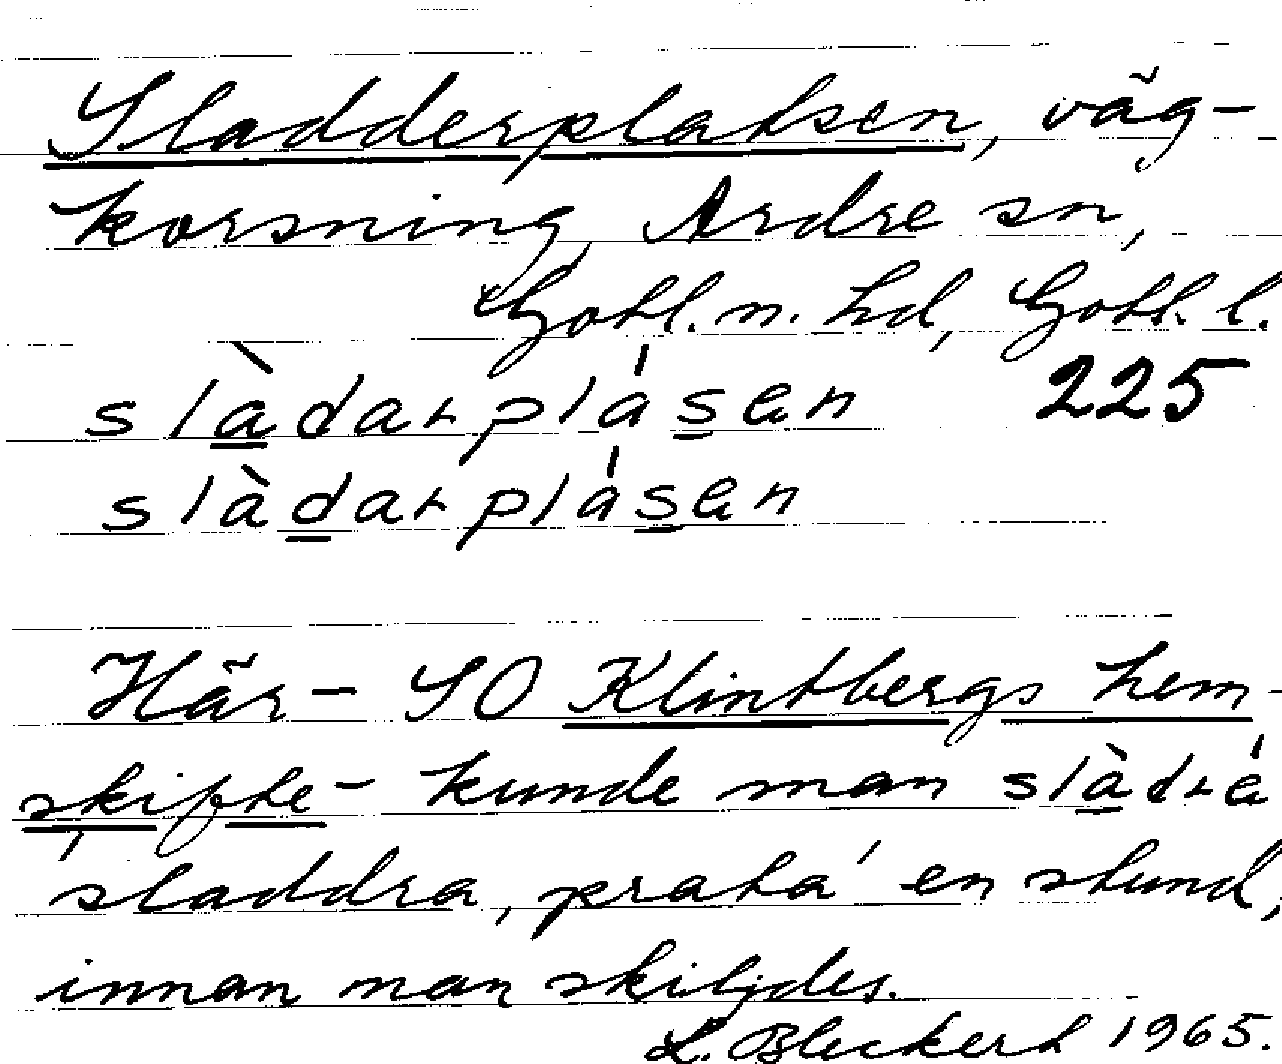 Sladderplatsen, väg-
korsning, Ardre sn,
Gotl. n. hd, Gotl. l.
slàdarplásen 225
slàdarplásen
Här - SO Klintbergs hem-
skifte - kunde man slàdrá
'sladdra, prata' en stund,
innan man skiljdes.
L. Bleckert 1965.